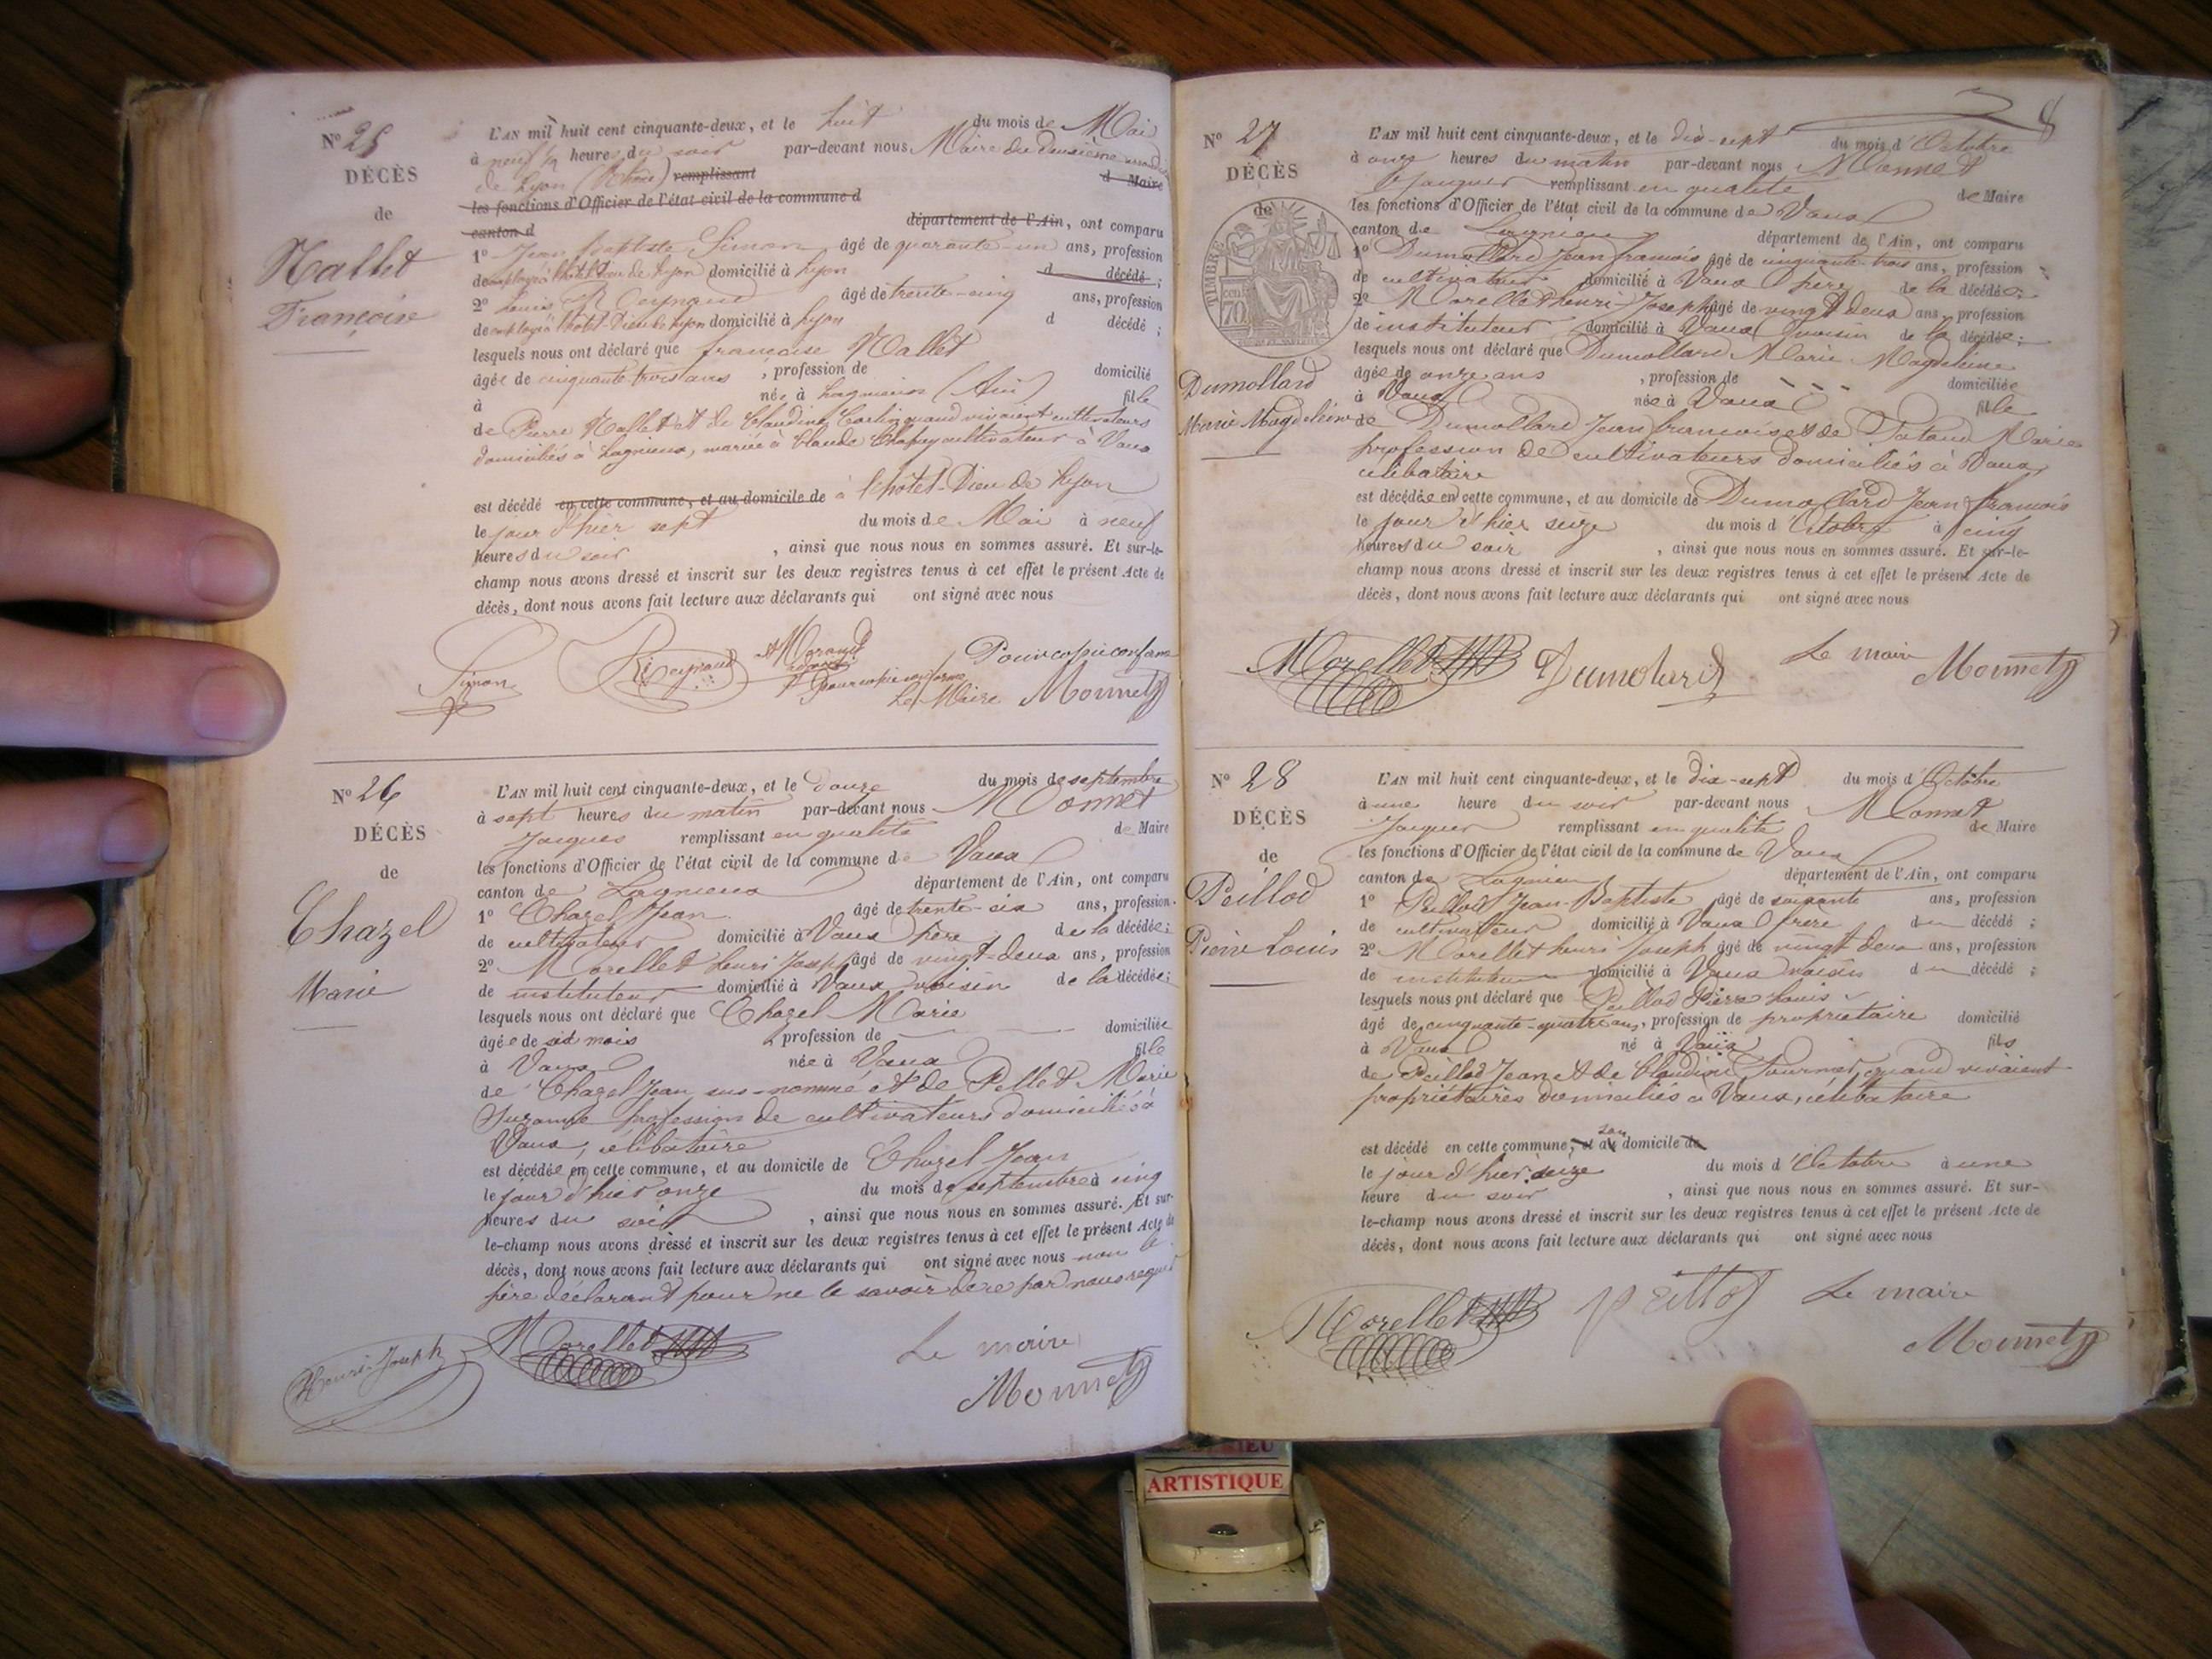 Nº 25
DÉCÈS
de
Nallet
Françoise
L'AN mil huit cent cinquante-deux, et le huit du mois de Mai
à neuf ½ heures du soir par-devant nous Maire du deuxième
de Lyon (Rhône) remplissant d Maire
les fonctions d'Officier de l'état civil de la commune d
canton d département de l'Ain, ont comparu
1º Jean Baptiste Simon âgé de quarante-un ans, profession
de employé à l'hôtel Dieu de Lyon domicilié à Lyon d décédé ;
2º Louis Reynaud âgé de trente-cinq ans, profession
de employé à l'hotel-Dieu de Lyon domicilié à Lyon d décédé ;
lesquels nous ont déclaré que françoise Nallet
âgée de cinquante trois ans , profession de domicilié
à née à Lagnieux (Ain) fille
de Pierre Nallet et de Claudine quand vivaient cultivateurs
domiciliés à Lagnieux, mariée à Claude Chapuy cultivateur à Vaux
est décédé en cette commune, et au domicile de à l'hotel-Dieu de Lyon
le jour d'hier sept du mois de Mai à neuf
heures du soir , ainsi que nous nous en sommes assuré. Et sur-le-
champ nous avons dressé et inscrit sur les deux registres tenus à cet effet le présent Acte de
décès, dont nous avons fait lecture aux déclarants qui ont signé avec nous
Simon Reynaud Pour copie conforme
Pour copie conforme
Le Maire Monnet
Nº 26
DÉCÈS
de
Chazel
Marie
L'AN mil huit cent cinquante-deux, et le douze du mois de septembre
à sept heures du matin par-devant nous Monnet
Jacques remplissant en qualité de Maire
les fonctions d'Officier de l'état civil de la commune de Vaux
canton de Lagnieux département de l'Ain, ont comparu
1º Chazel Jean âgé de trente-six ans, profession
de cultivateur domicilié à Vaux père de la décédée ;
2º Morellet henri Joseph âgé de vingt-deux ans, profession
de instituteur domicilié à Vaux voisin de la décédée ;
lesquels nous ont déclaré que Chazel Marie
âgée de six mois profession de domiciliée
à Vaux née à Vaux fille
de Chazel Jean sus-nommé et de Pellet Marie
Suzanne profession de cultivateurs domiciliés à
Vaux, célibataire
est décédée en cette commune, et au domicile de Chazel Jean
le jour d'hier onze du mois de septembre à cinq
heures du soir , ainsi que nous nous en sommes assuré. Et sur-
le-champ nous avons dressé et inscrit sur les deux registres tenus à cet effet le présent Acte de
décès, dont nous avons fait lecture aux déclarants qui ont signé avec nous non le
père déclarant pour ne le savoir de ce par nous requis
Henri-Joseph Morellet Le maire
Monnet
8
Nº 27
DÉCÈS
de
TIMBRE
70
Dumollard
Marie Magdeleine
L'AN mil huit cent cinquante-deux, et le dix-sept du mois d'Octobre
à onze heures du matin par-devant nous Monnet
Jacques remplissant en qualité de Maire
les fonctions d'Officier de l'état civil de la commune de Vaux
canton de Lagnieux département de l'Ain, ont comparu
1º Dumollard Jean francois âgé de cinquante trois ans, profession
de cultivateur domicilié à Vaux père de la décédée ;
2º Morellet henri-Joseph âgé de vingt deux ans, profession
de instituteur domicilié à Vaux voisin de la décédée ;
lesquels nous ont déclaré que Dumollard Marie Magdeleine
âgée de onze ans , profession de domiciliée
à Vaux née à Vaux fille
de Dumollard Jean francois et de Marie
profession de cultivateurs domiciliés à Vaux,
célibataire
est décédée en cette commune, et au domicile de Dumollard Jean francois
le jour d'hier seize du mois d'Octobre à cinq
heures du soir , ainsi que nous nous en sommes assuré. Et sur-le-
champ nous avons dressé et inscrit sur les deux registres tenus à cet effet le présent Acte de
décès, dont nous avons fait lecture aux déclarants qui ont signé avec nous
Morellet Dumolard Le maire Monnet
Nº 28
DÉCÈS
de
Peillod
Pierre Louis
L'AN mil huit cent cinquante-deux, et le dix-sept du mois d'Octobre
à une heure du soir par-devant nous Monnet
Jacques remplissant en qualité de Maire
les fonctions d'Officier de l'état civil de la commune de Vaux
canton de Lagnieu département de l'Ain, ont comparu
1º Peillod Jean-Baptiste âgé de soixante ans, profession
de cultivateur domicilié à Vaux frère du décédé ;
2º Morellet henri Joseph âgé de vingt deux ans, profession
de instituteur domicilié à Vaux voisin du décédé ;
lesquels nous ont déclaré que Peillod Pierre Louis
âgé de cinquante-quatre ans, profession de propriétaire domicilié
à Vaux né à Vaux fils
de Peillod Jean et de Claudine Fournet, quand vivaient
propriétaires domiciliés à Vaux, célibataire
est décédé en cette commune, et au son domicile de
le jour d'hier seize du mois d'Octobre à une
heure du soir , ainsi que nous nous en sommes assuré. Et sur-
le-champ nous avons dressé et inscrit sur les deux registres tenus à cet effet le présent Acte de
décès, dont nous avons fait lecture aux déclarants qui ont signé avec nous
Morellet Le maire
Monnet
ARTISTIQUE